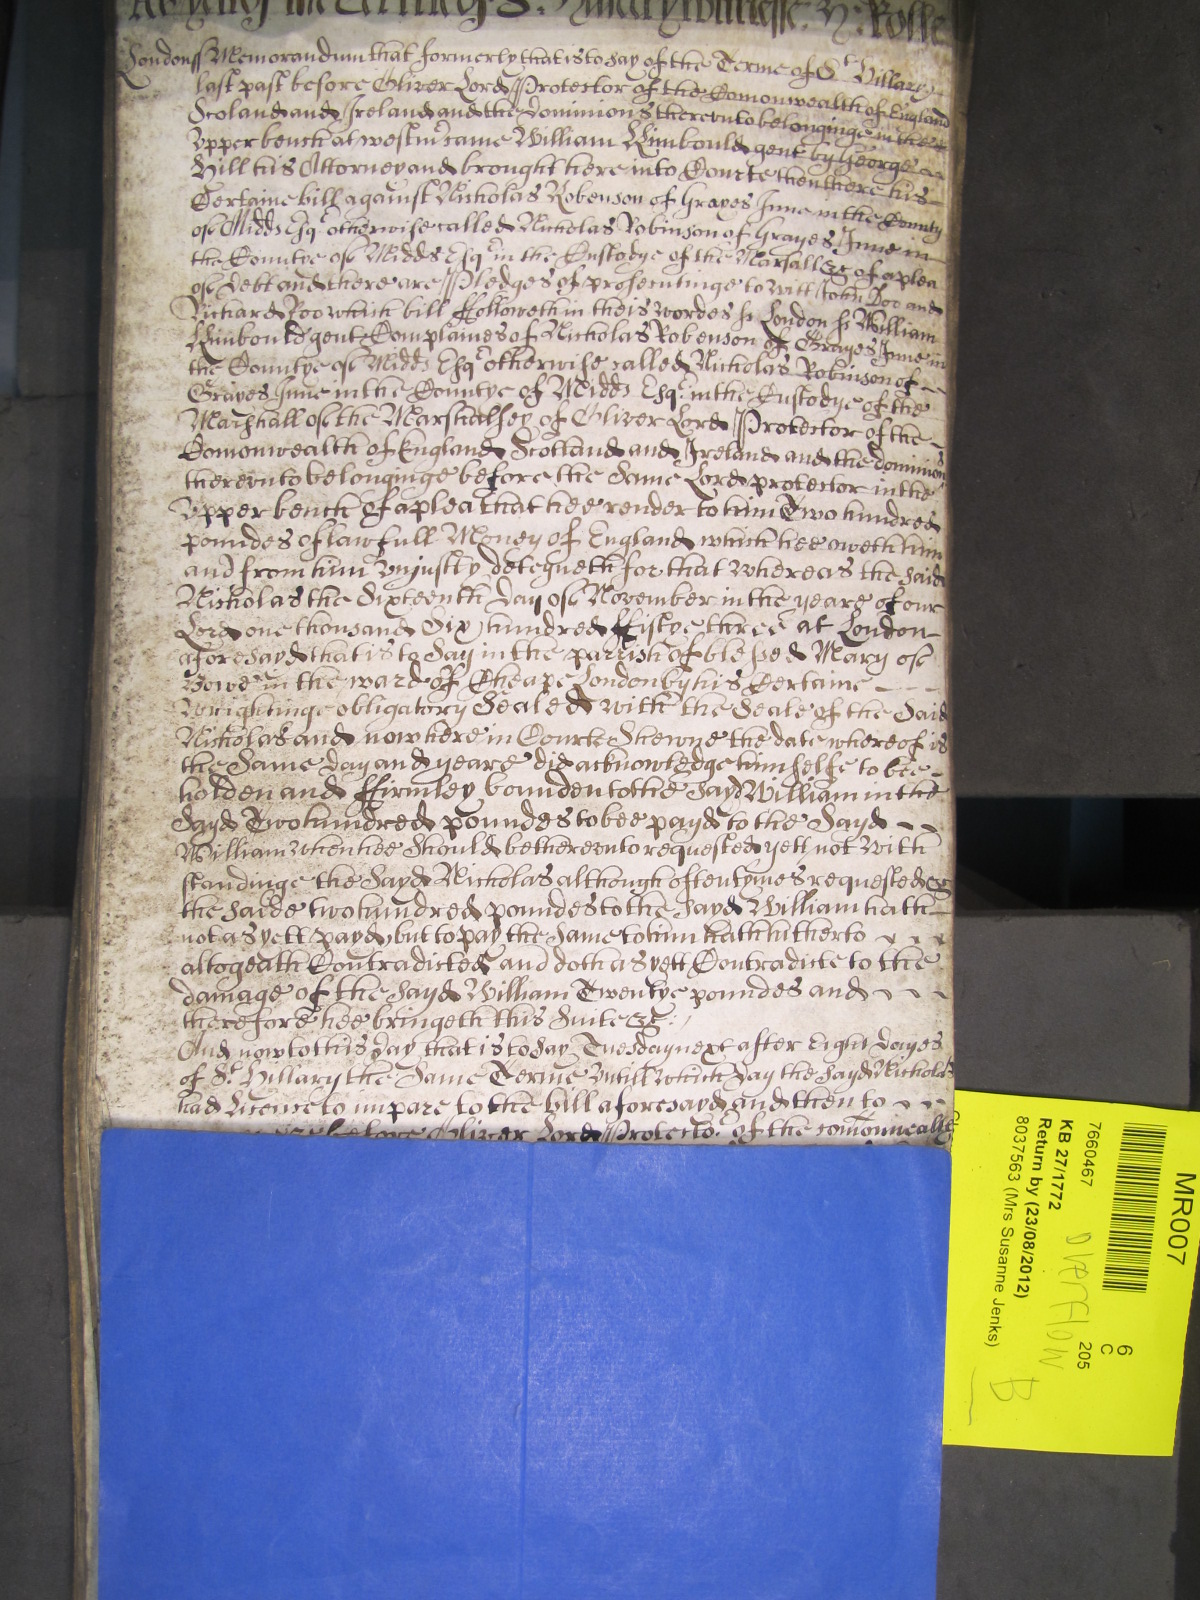 Witnes S. Hillary Witnesse H: Rolle
Londonss Memorandum that formerly that is to say of the Terme of St Hillary
last past before Oliver Lord Protector of the Comonwealth of England
Scoland and Ireland and the dominions thereunto belonginge in the
Upper bench at westmr came William Wimbould gent by George
Hill his Attorney and brought here into Courte then there his
Certaine bill against Nicholas Robenson of Grayes Inne in the County
of Midds Esqr otherwise called Nicholas Robinson of Grayes Inne in
the Countye of Midds Esqr in the Custodye of the Marshall &c of a plea
of Debt and there are Pledges of prosecutinge to witt John Doo and
Richard Roo which bill ffolloweth in theis wordes ss London ss William
Wimbould gent Complaines of Nicholas Robenson of Grayes Inne in
the Countye of Midds Esqr otherwise called Nicholas Robinson of
Grayes Inne in the Countye of Midds Esqr in the Custodye of the
Marshall of the Marshalsey of Oliver Lord Protector of the
Comonwealth of England Scotland and Ireland and the dominions
thereunto belonginge before the same Lord protector in the
Upper bench of a plea that hee render to him Two hundred
poundes of lawfull Money of England which hee oweth him
and from him Unjustly deteyneth for that Whereas the said
Nicholas the Sixteenth Day of November in the yeare of our
Lord one thousand Six hundred ffiftye three at London
aforesayd that is to say in the parrish of blessed Mary of
Bowe in the ward of Cheape London by his Certaine
Wrightinge obligatory Sealed with the Seale of the Said
Nicholas and now here in Courte Shewne the date whereof is
the Same Day and yeare did acknowledge himselfe to bee
holden and ffirmley bounden to the sayd William in the
Sayd Two hundred poundes to bee payd to the Sayd
William when hee Should be thereunto requested yett not with
standinge the Sayd Nicholas although oftentymes requested &c
the saide two hundred poundes to the sayd William hath
not as yett payd but to pay the Same to him hath hitherto
altogeath Contradicted and doth as yett Contradicte to the
damage of the Sayd William Twentye poundes and
therefore hee bringeth this Suite &c:
And now to this day that is to say Tuesday next after Eight Dayes
of St Hillary the Same Terme Untill which Day the Sayd Nicholas
had licence to impare to the bill aforesayd and then to
before Oliver Lord Protector of the comonwealth
MR007
7660467
6
C
205
KB 27/1772
Return by (23/08/2012)
8037563 (Mrs Susanne Jenks)
overflow
B